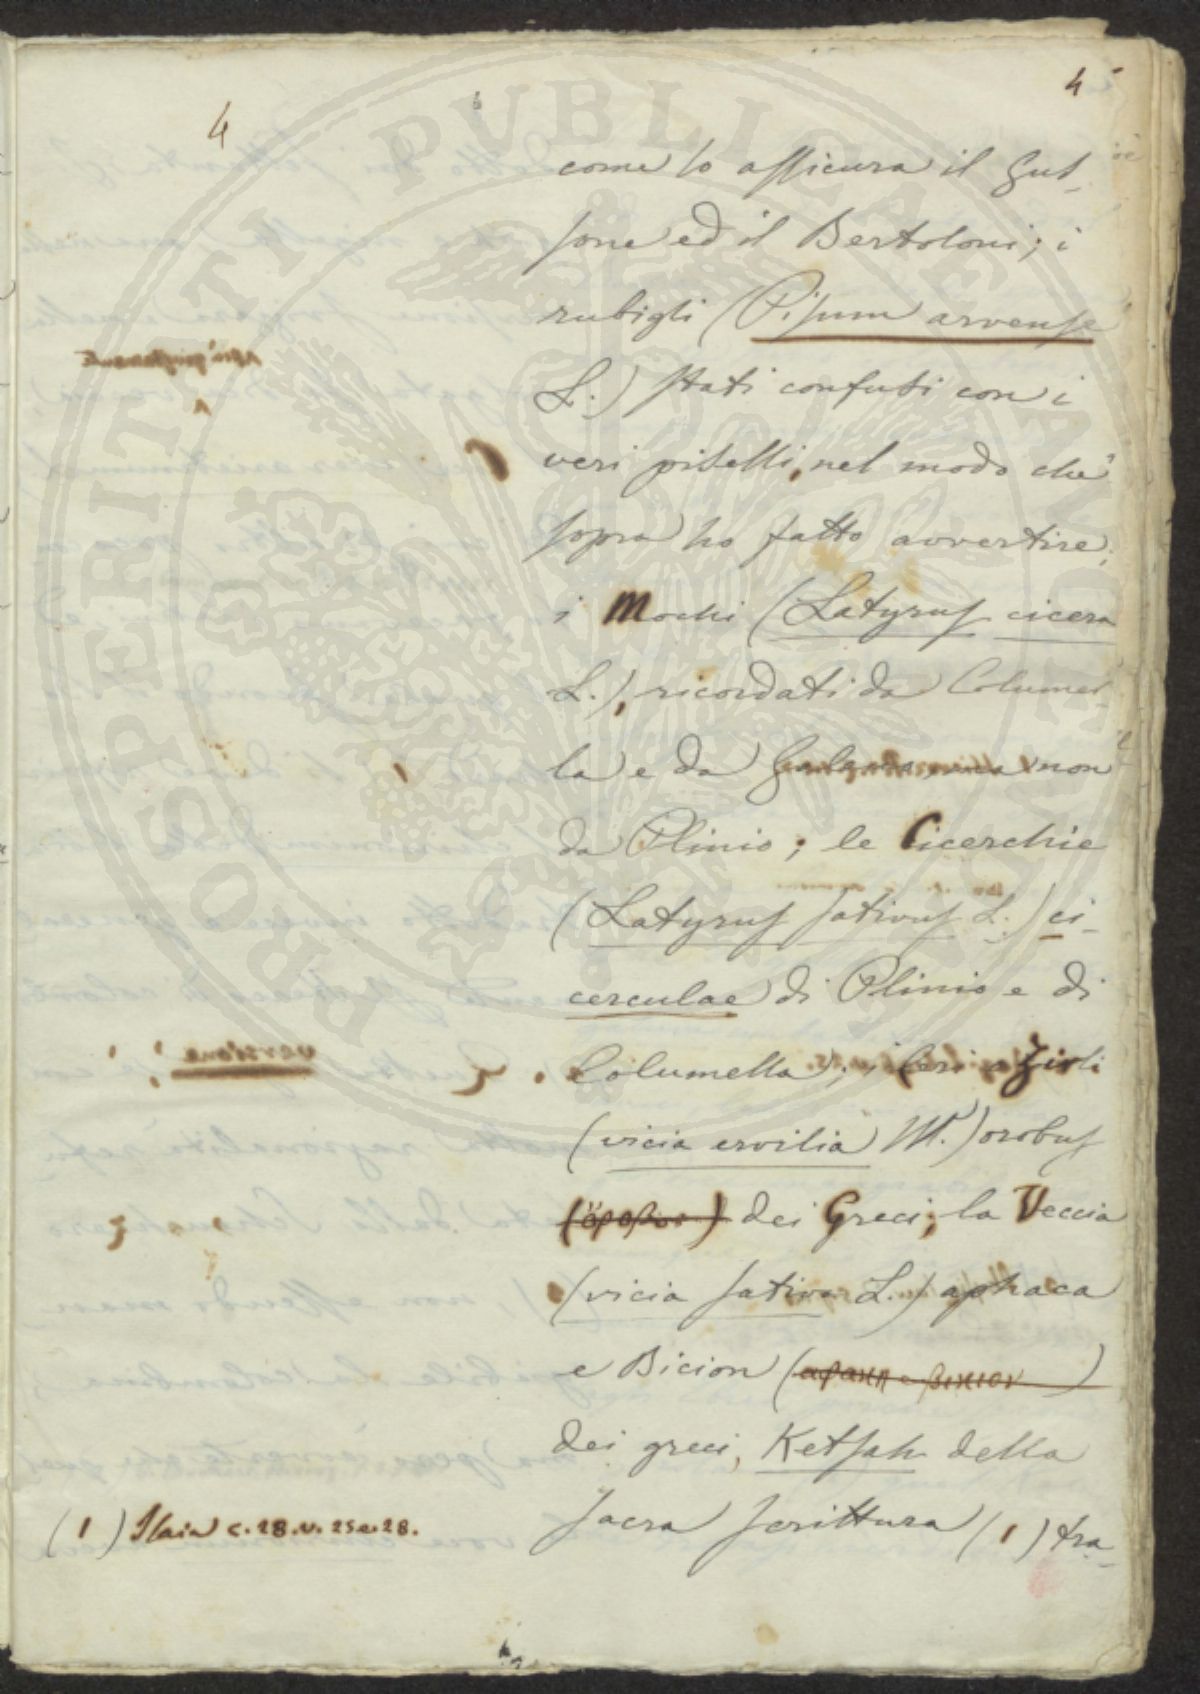 4
4
come lo assicura il Gus-
sone ed il Bertoloni; i
rubigli (Pisum arvense
L.) stati confusi con i
veri piselli, nel modo che
sopra ho fatto avvertire;
i Mochi (Latyrus cicera
L.), ricordati da Columel-
la e da non
da Plinio; le Cicerchie
(Latyrus sativus L.) ci-
cerculae di Plinio e di
Columella; i
(vicia ervilia M.) orobus
(ὄροβος) dei Greci; la Veccia
(vicia sativa L.) aphaca
e Bicion (αφακη e βικιον)
dei greci, Ketsah della
sacra scrittura (1) tra-
(1) Isaia c. 28. v. 25 e. 28.
PROSPERITATI PUBLICAE AUGENDAE